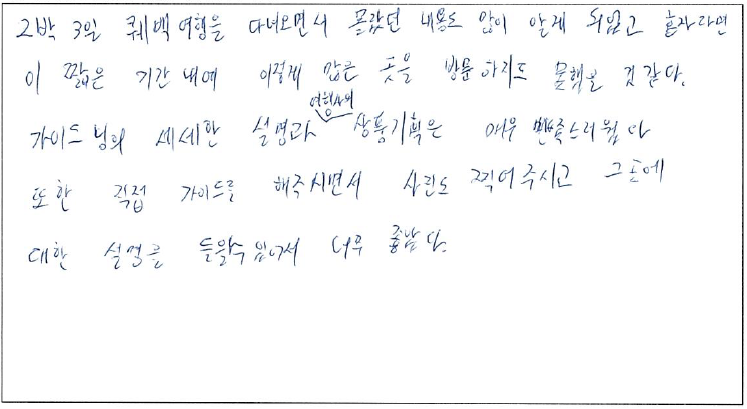 2박 3일 퀘백 여행을 다녀오면서 몰랐던 내용도 많이 알게 되었고 혼자라면
이 짧은 기간 내에 이렇게 많은 곳을 방문하지도 못했을 것 같다.
가이드님의 세세한 설명과 여행사의 상품기획은 매우 만족스러웠다
또한 직접 가이드를 해주시면서 사진도 찍어 주시고 그 곳에
대한 설명를 들을수 있어서 너무 좋았다.